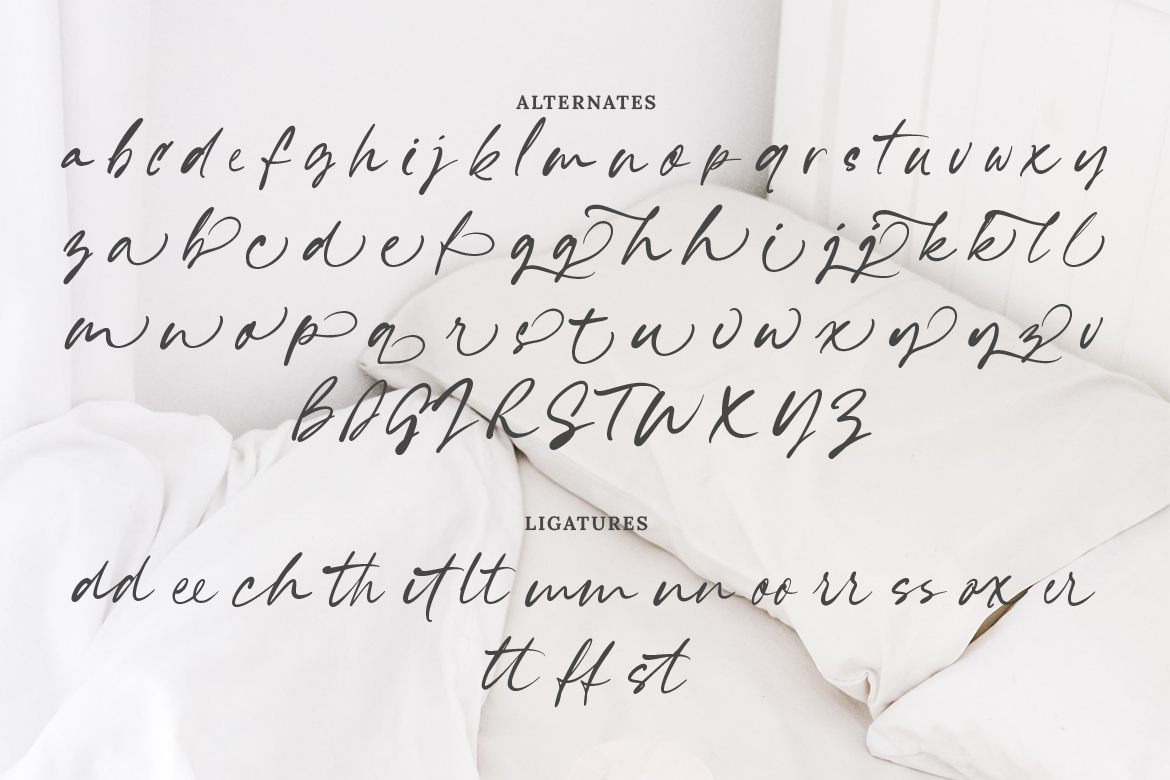 ALTERNATES
a b c d e f g h i j k l m n o p q r s t u v w x y
z a b c d e f g g h h i j j k k l l
m n o p q r s t u v w x y y z v
B A G I R S T W X Y Z
LIGATURES
dd ee ch th it lt mm nn oo rr ss ox er
tt ff st